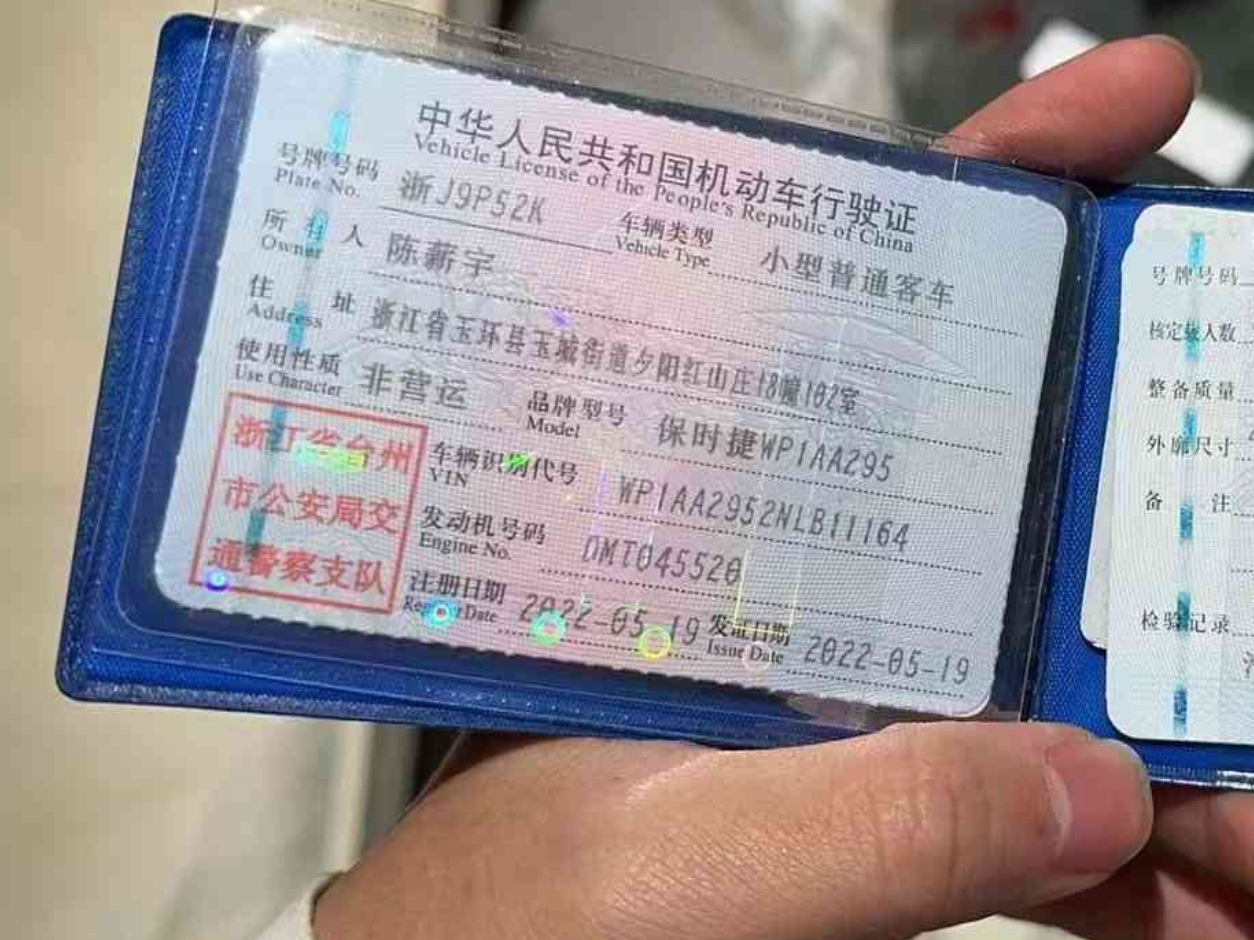 中华人民共和国机动车行驶证
Vehicle License of the People's Republic of China
号牌号码 浙J9P52K 车辆类型 小型普通客车
Plate No. Vehicle Type
所有人 陈薪宇
Owner
住址 浙江省玉环县玉城街道夕阳红山庄18幢102室
Address
使用性质 非营运 品牌型号 保时捷WP1AA295
Use Character Model
浙江省台州
市公安局交
通警察支队
车辆识别代号 WP1AA2952NLB11164
VIN
发动机号码 DMT045520
Engine No.
注册日期 2022-05-19 发证日期 2022-05-19
Register Date Issue Date
号牌号码
核定载人数
整备质量
外廓尺寸
备注
检验记录